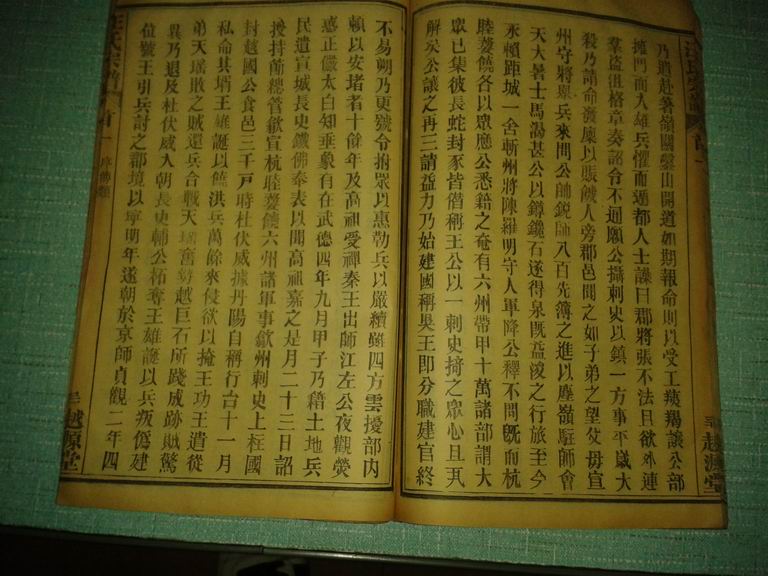 乃遁赴箬嶺闢鑿山開道如期報命則以受工瘐羯議公部
擁門而入雄兵懼而遁都人士譟曰郡將張不法且欲外連
羣盜沮格章奏詔令不通願公攝刺史以鎮一方事平歲大
殺乃請命發廩以賑饑人旁郡邑聞之如子弟之望父毋宣
州守將舉兵來問公帥銳師八百先簿之進以塵嶺駐師會
天大暑士馬渴甚公以鐏鑱石遂得泉既益浚之行旅至今
永賴距城一舍斬州將陳羅明守人軍降公釋不問既而杭
睦婺饒各以眾應公悉籍之奄有六州帶甲十萬諸部謂大
眾已集彼長蛇封豕皆僭稱王公以一刺史掎之眾心且
解矣公讓之再三請益力乃始建國稱吳王即分職建官終
不易朔乃更號令拊眾以惠勒兵以嚴續雖四方雲擾部內
賴以安堵者十餘年及高祖受禪秦王出師江左公夜觀熒
惑正儼太白知垂象有在武德四年九月甲子乃籍土地兵
民遣宣城長史鐵佛奉表以聞高祖嘉之是月二十三日詔
授持節總管歙宣杭睦婺饒六州諸軍事歙州刺史上柱國
封越國公食邑三千戸時杜伏威據丹陽自稱行台十一月
私命其壻王雄誕以餼洪兵萬餘來侵欲以掩王功王遣從
弟天瑶敗之賊還兵合戰天瑶奮舞越巨石所踐成跡賊驚
異乃退及杜伏威入朝長史輔公柘奪王雄誕以兵叛僞建
位號王引兵討之郡境以寧明年遂朝於京師貞觀二年四
汪氏宗譜
首一
序傳類
三
越源堂
三
越源堂